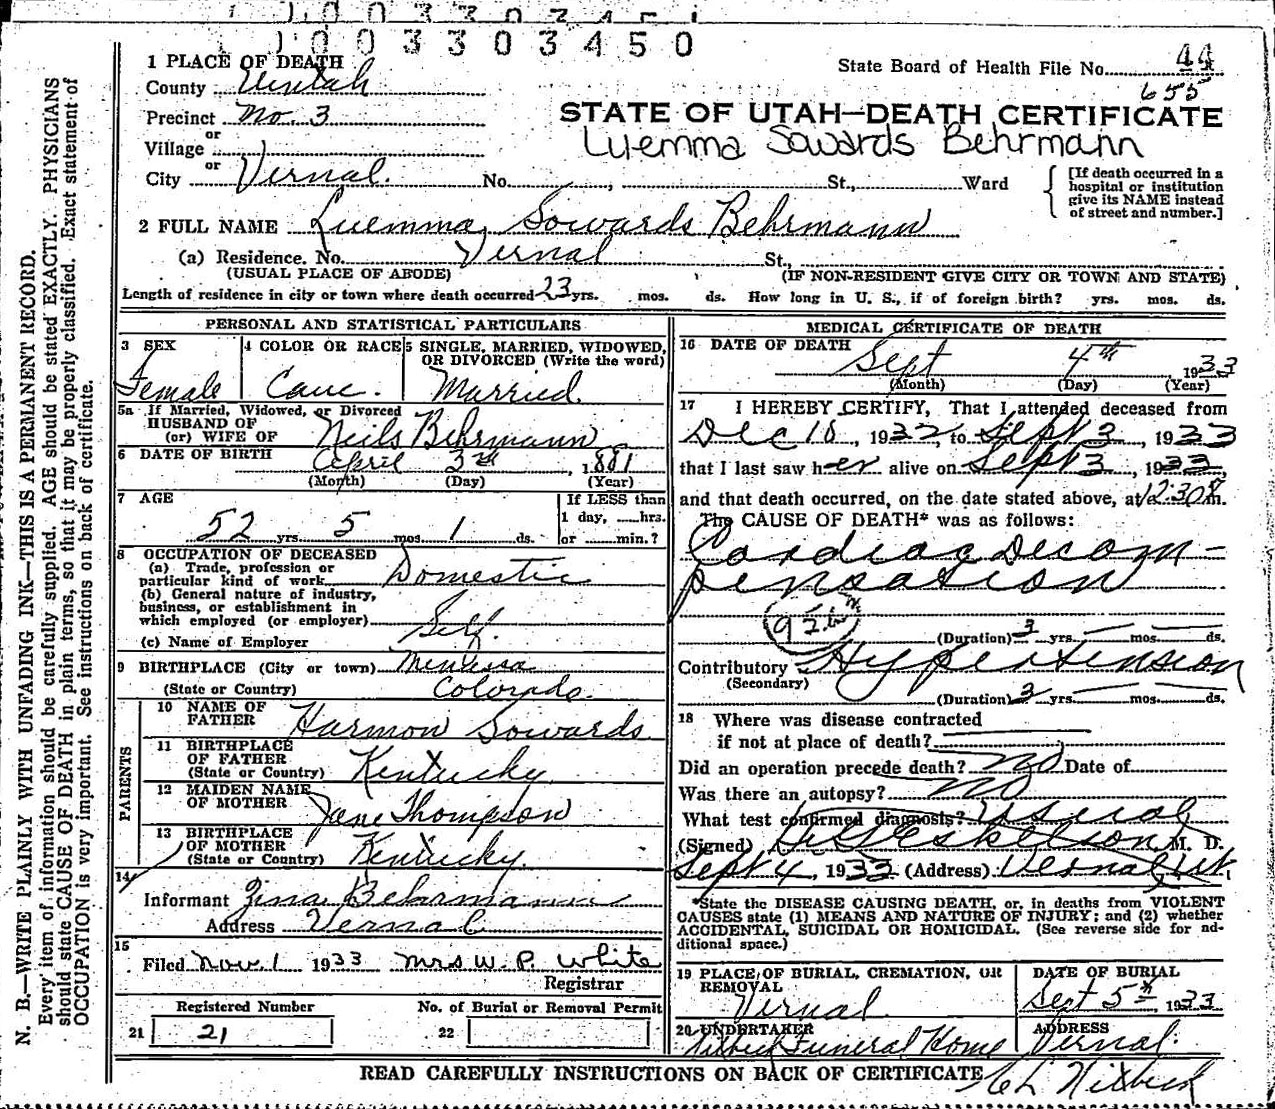 0003303450
State Board of Health File No. 44
655
1 PLACE OF DEATH
County Uintah
Precinct No. 3
or
Village
or
City Vernal. No. , St., Ward
STATE OF UTAH—DEATH CERTIFICATE
Luemma Sowards Behrmann
[If death occurred in a
hospital or institution
give its NAME instead
of street and number.]
2 FULL NAME Luemma Sowards Behrmann
(a) Residence. No. Vernal St.,
(USUAL PLACE OF ABODE) (IF NON-RESIDENT GIVE CITY OR TOWN AND STATE)
Length of residence in city or town where death occurred 23 yrs. mos. ds. How long in U. S., if of foreign birth? yrs. mos. ds.
PERSONAL AND STATISTICAL PARTICULARS
3 SEX
Female
4 COLOR OR RACE
Cauc.
5 SINGLE, MARRIED, WIDOWED,
OR DIVORCED (Write the word)
Married.
5a If Married, Widowed, or Divorced
HUSBAND OF
(or) WIFE OF Neils Behrmann
6 DATE OF BIRTH April 3rd, 1881
(Month) (Day) (Year)
7 AGE
52 yrs. 5 mos. 1 ds.
If LESS than
1 day, hrs.
or min.?
8 OCCUPATION OF DECEASED
(a) Trade, profession or
particular kind of work Domestic
(b) General nature of industry,
business, or establishment in
which employed (or employer) Self.
(c) Name of Employer
9 BIRTHPLACE (City or town)
(State or Country) Colorado.
PARENTS
10 NAME OF
FATHER Harmon Sowards
11 BIRTHPLACE
OF FATHER
(State or Country) Kentucky
12 MAIDEN NAME
OF MOTHER Jane Thompson
13 BIRTHPLACE
OF MOTHER
(State or Country) Kentucky.
14
Informant Zina Behrmann
Address Vernal
15
Filed Nov. 1 1933 Mrs W. P. White
Registrar
Registered Number
21 21
No. of Burial or Removal Permit
22
MEDICAL CERTIFICATE OF DEATH
16 DATE OF DEATH
Sept 4th 1933
(Month) (Day) (Year)
17 I HEREBY CERTIFY, That I attended deceased from
Dec 18, 1932, to Sept 3, 1933
that I last saw her alive on Sept 3, 1933,
and that death occurred, on the date stated above, at 12:30 m.
The CAUSE OF DEATH* was as follows:
Cardiac Decom-
pensation
92
(Duration) 3 yrs. mos. ds.
Contributory Hypertension
(Secondary)
(Duration) 3 yrs. mos. ds.
18 Where was disease contracted
if not at place of death?
Did an operation precede death? no Date of
Was there an autopsy? no
What test confirmed diagnosis? Usual
(Signed) M. D.
Sept 4, 1933 (Address) Vernal Ut.
*State the DISEASE CAUSING DEATH, or, in deaths from VIOLENT
CAUSES state (1) MEANS AND NATURE OF INJURY; and (2) whether
ACCIDENTAL, SUICIDAL OR HOMICIDAL. (See reverse side for ad-
ditional space.)
19 PLACE OF BURIAL, CREMATION, OR
REMOVAL
Vernal
DATE OF BURIAL
Sept 5th, 1933
20 UNDERTAKER
Funeral Home
ADDRESS
Vernal.
READ CAREFULLY INSTRUCTIONS ON BACK OF CERTIFICATE
N. B.—WRITE PLAINLY WITH UNFADING INK—THIS IS A PERMANENT RECORD.
Every item of information should be carefully supplied. AGE should be stated EXACTLY. PHYSICIANS
should state CAUSE OF DEATH in plain terms, so that it may be properly classified. Exact statement of
OCCUPATION is very important. See instructions on back of certificate.